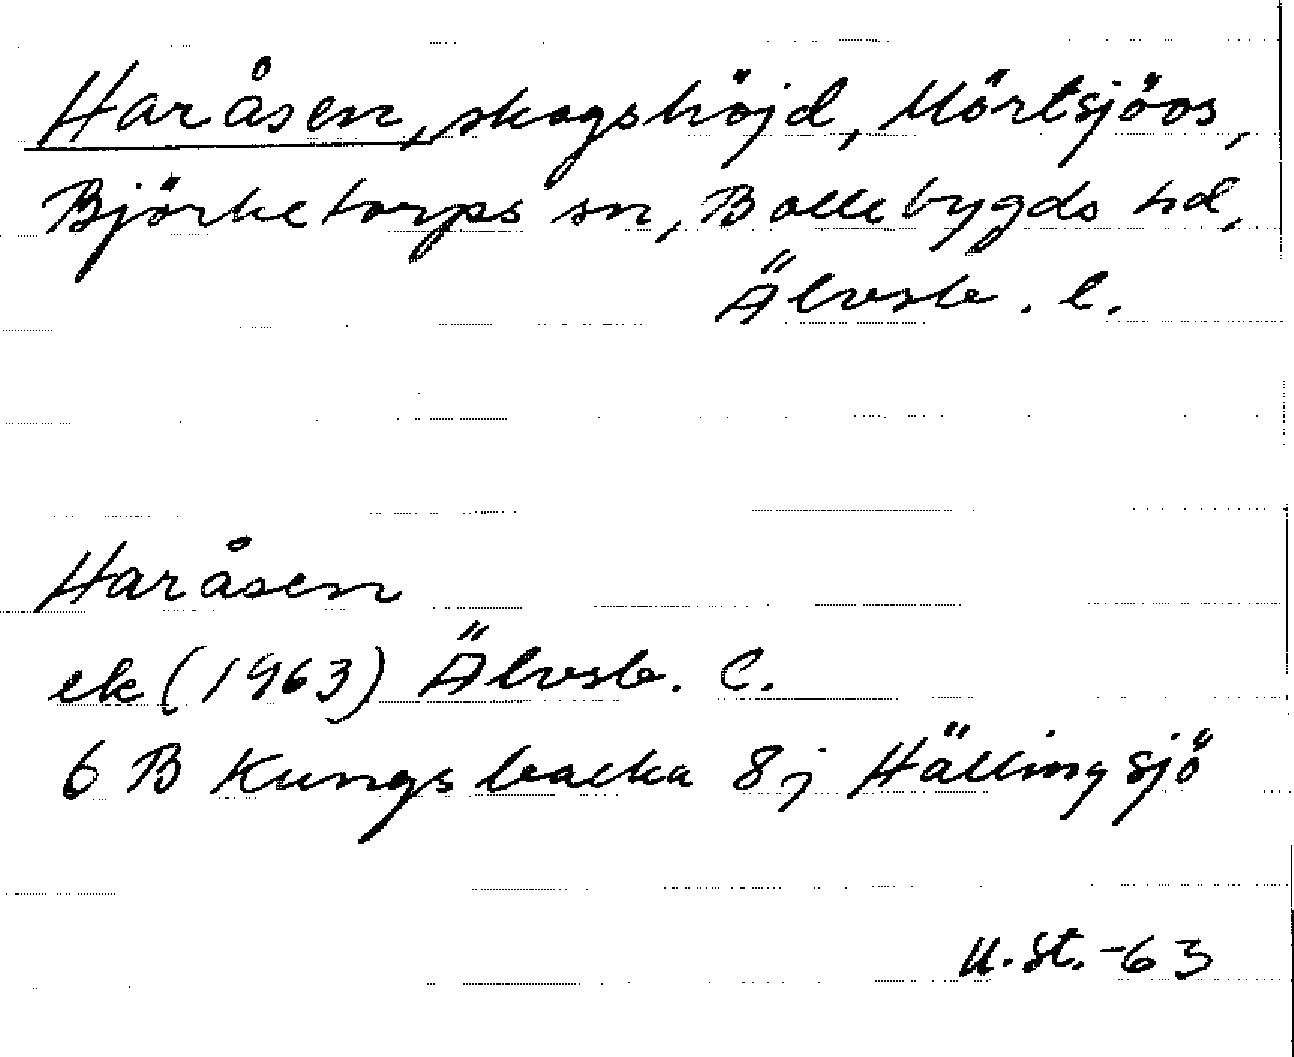 Haråsen, skogshöjd, Mörtsjöås,
Björketorps sn, Bollebygds hd,
Älvsb. l.
Haråsen
ek (1963) Älvsb. l.
6 B Kungsbacka 8j Hällingsjö
U. St. -63